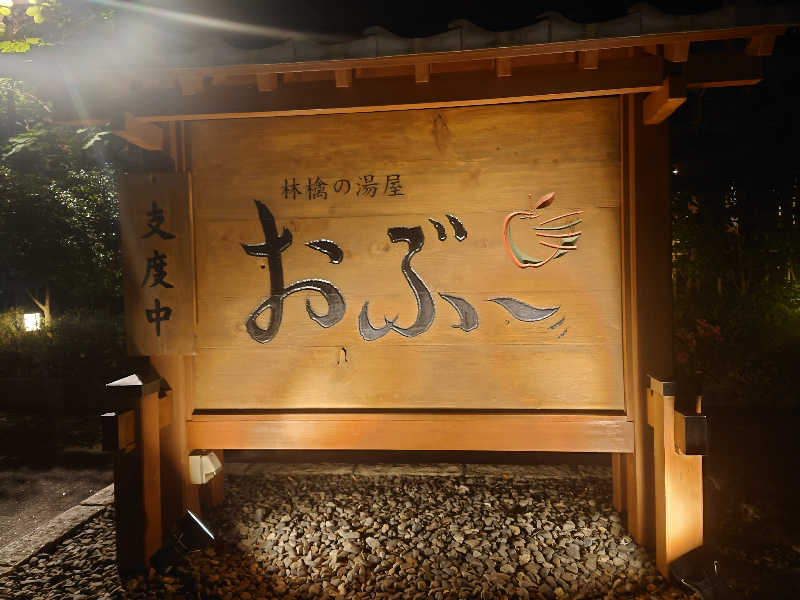 林檎の湯屋
おぶ~
支度中